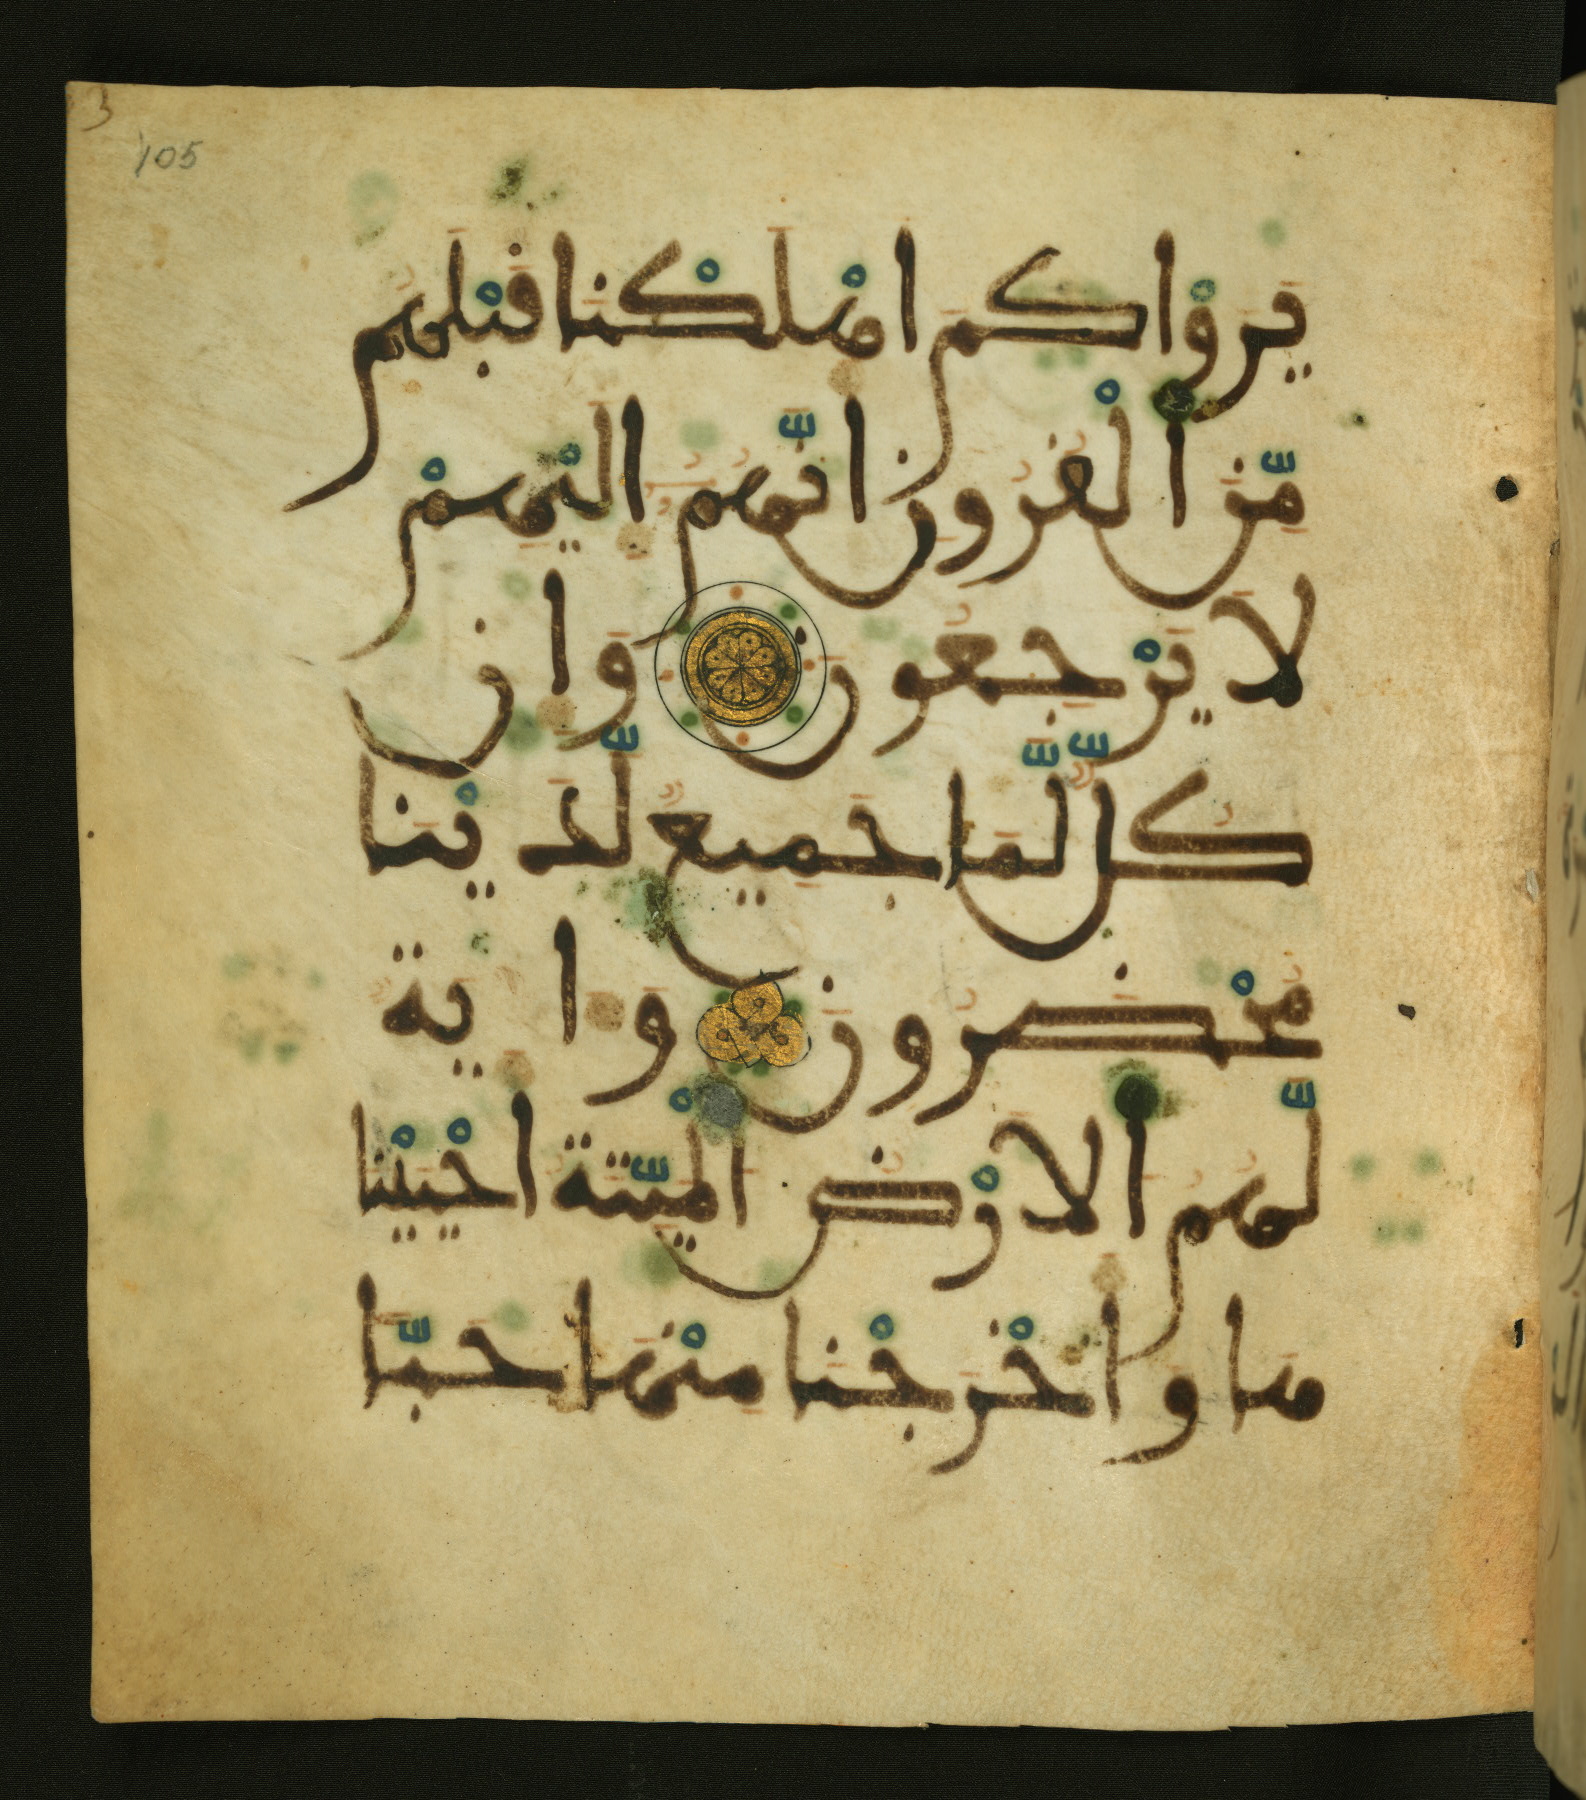 3
105
يَرَوْا۟ كَمَ اَهْلَكْنَا قَبْلَهُم
مِّنَ اَ۬لْقُرُونِ أَنَّهُمُۥٓ إِلَيْهِمْ
لَا يَرْجِعُونَ وَإِن
كُلٌّ لَّمَا جَمِيعٌ لَّدَيْنَا
مُحْضَرُونَ وَءَايَةٌ
لَّهُمُ اُ۬لَارْضُ اُ۬لْمَيِّتَةُ أَحْيَيْنَٰ
هَا وَأَخْرَجْنَا مِنْهَا حَبّاٗ